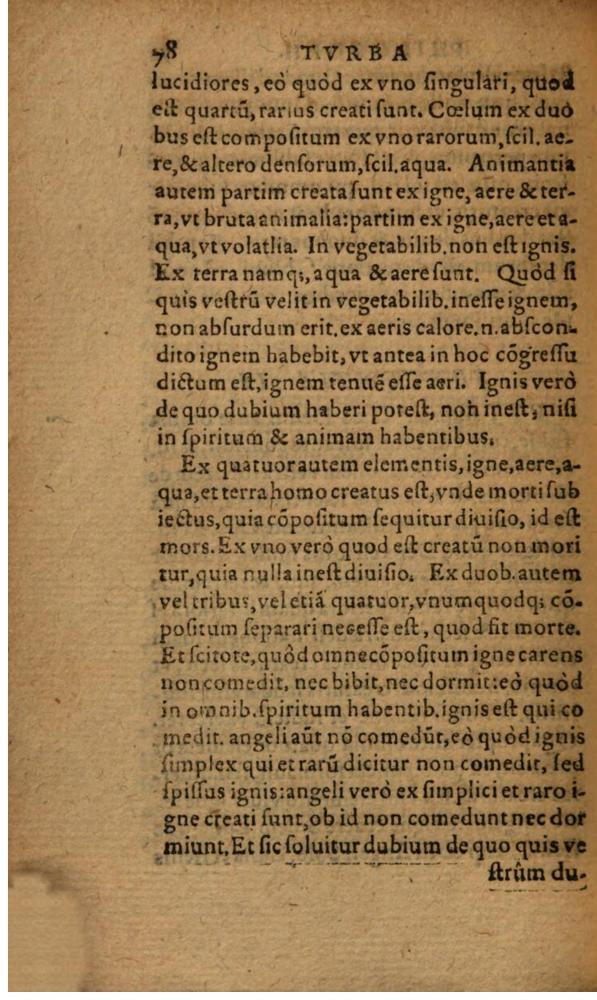 78 TVRBA
lucidiores, eò quòd ex vno ſingulari, quod
eſt quartū, rarius creati ſunt. Cœlum ex duo
bus eſt compoſitum ex vno rarorum, ſcil. ae-
re, & altero denſorum, ſcil. aqua. Animantia
autem partim creata ſunt ex igne, aere & ter-
ra, vt bruta animalia: partim ex igne, aere et a-
qua, vt volatlia. In vegetabilib. non eſt ignis.
Ex terra namq;, aqua & aere ſunt. Quòd ſi
quis veſtrū velit in vegetabilib. ineſſe ignem,
non abſurdum erit. ex aeris calore. n. abſcon-
dito ignem habebit, vt antea in hoc cōgreſſu
dictum eſt, ignem tenuē eſſe aeri. Ignis verò
de quo dubium haberi poteſt, non ineſt, niſi
in ſpiritum & animam habentibus.
Ex quatuor autem elementis, igne, aere, a-
qua, et terra homo creatus eſt, vnde morti ſub
iectus, quia cōpoſitum ſequitur diuiſio, id eſt
mors. Ex vno verò quod eſt creatū non mori
tur, quia nulla ineſt diuiſio. Ex duob. autem
vel tribus, vel etiā quatuor, vnumquodq; cō-
poſitum ſeparari neceſſe eſt, quod fit morte.
Et ſcitote, quòd omne cōpoſitum igne carens
non comedit, nec bibit, nec dormit: eò quòd
in omnib. ſpiritum habentib. ignis eſt qui co
medit. angeli aūt nō comedūt, eò quòd ignis
ſimplex qui et rarū dicitur non comedit, ſed
ſpiſſus ignis: angeli verò ex ſimplici et raro i-
gne creati ſunt, ob id non comedunt nec dor
miunt. Et ſic ſoluitur dubium de quo quis ve
ſtrûm du-